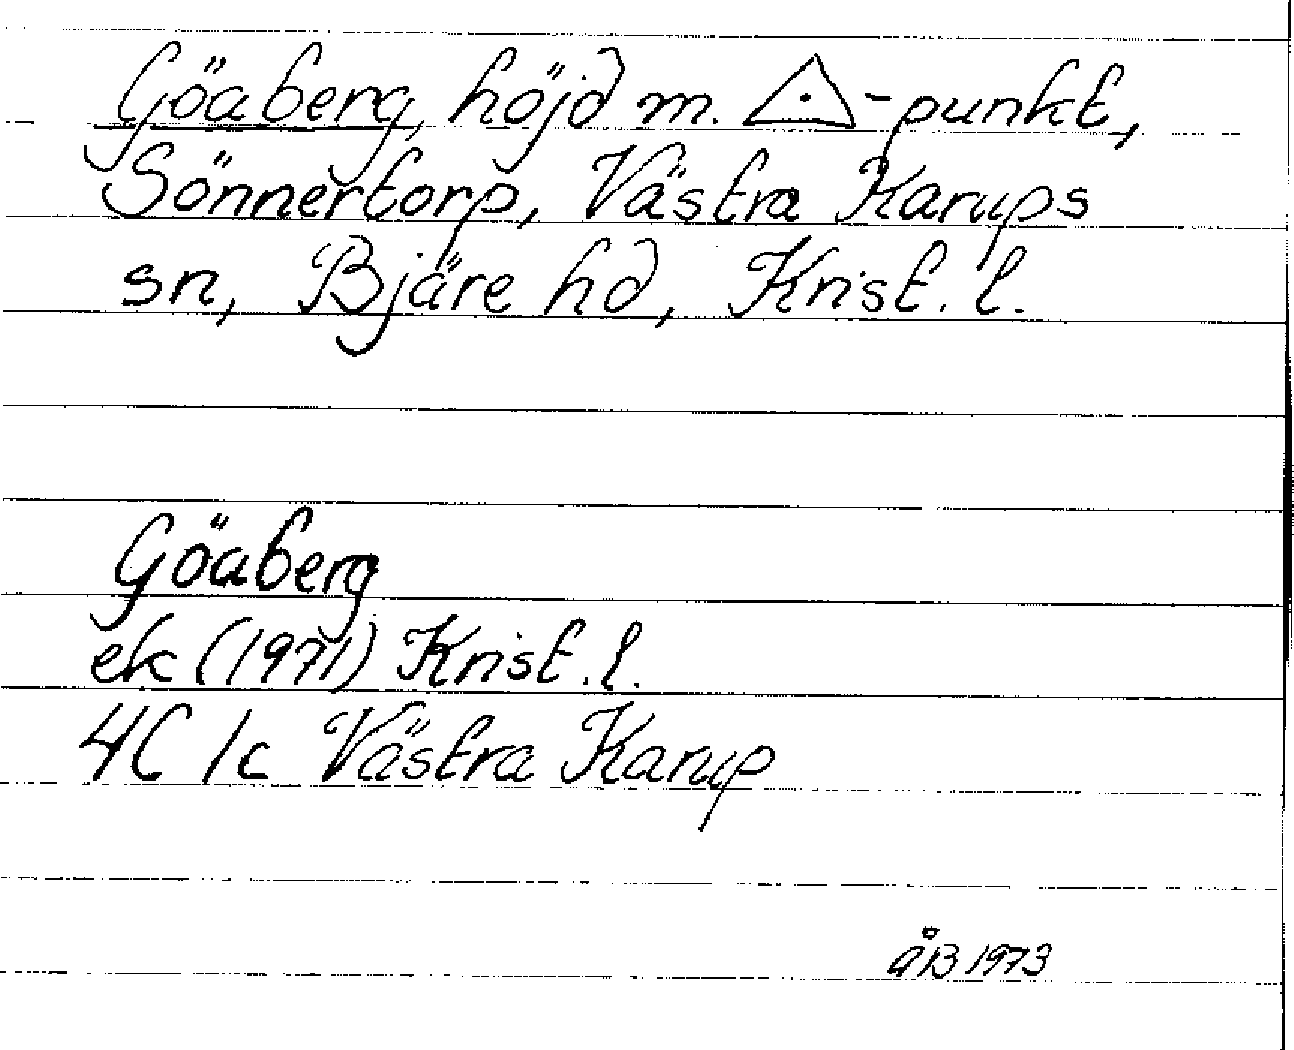 Göaberg, höjd m. △-punkt,
Sönnertorp, Västra Karups
sn, Bjäre hd, Krist. l.
Göaberg
ek (1971) Krist. l.
4C 1c Västra Karup
åB 1973